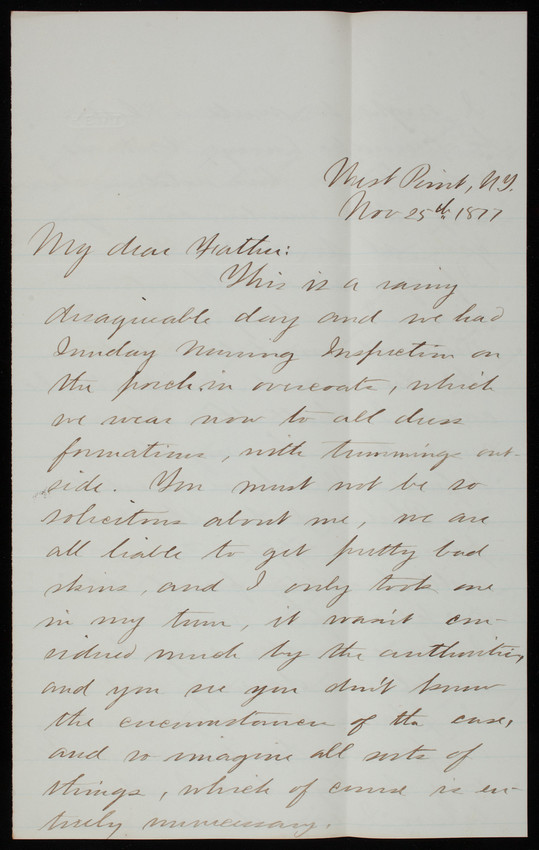 West Point, N.Y.
Nov 25th, 1877
My dear Father:
This is a rainy
disagreeable day and we had
Sunday Morning Inspection on
the porch in overcoats, which
we wear now to all dress
formations, with trimmings out-
side. You must not be so
solicitous about me, we are
all liable to get pretty bad
skins, and I only took one
in my turn, it wasn't con-
sidered much by the authorities,
and you see you don't know
the circumstances of the case,
and so imagine all sorts of
things, which of course is en-
tirely unnecessary.